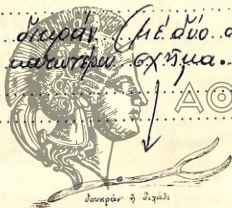 δικράν (μὲ δύο
κατωτέρω σχῆμα.
ΑΘ
δουκράν ἢ διχάλι